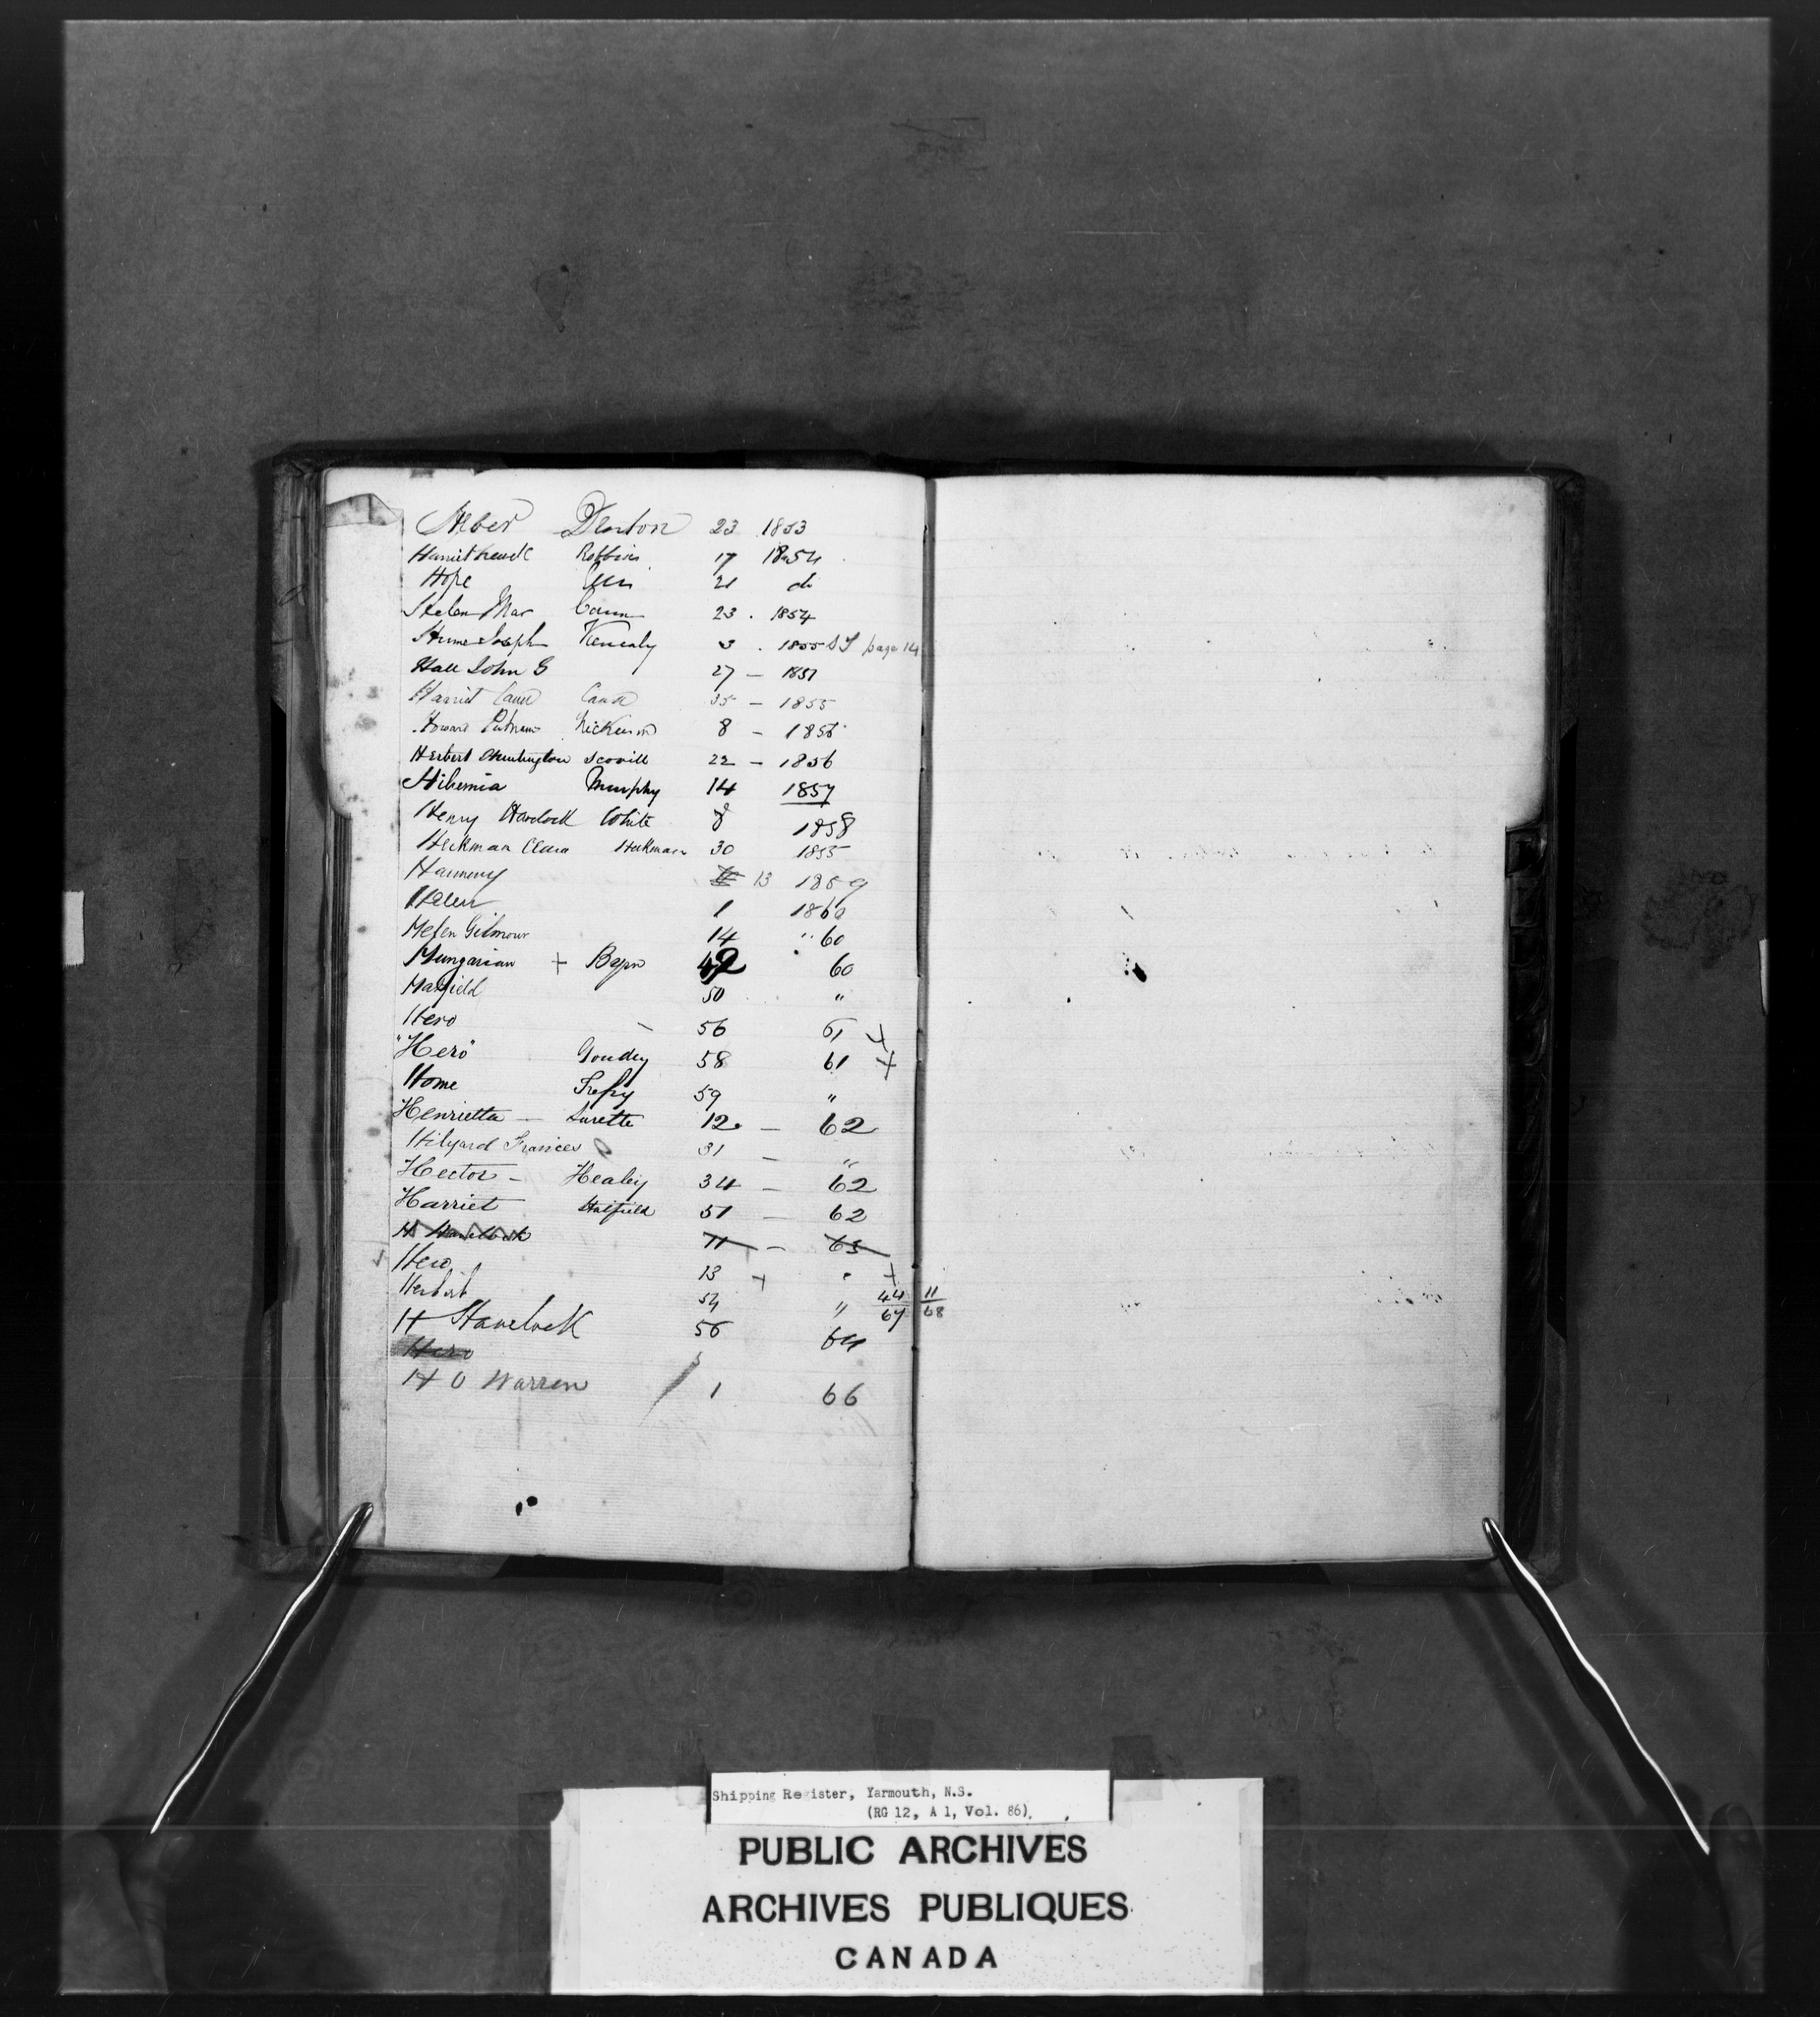 Heber Denton 23 1853
Harriet Newell Robbins 17 1854
Hope 21 do
Helen Mar Cann 23 . 1854
Hume Joseph Kenealy 3 . 1855 page 14
Hall John G 27 — 1851
Harriet Cann Cann 35 — 1855
Howard Putnam Nickerson 8 — 1856
Herbert Huntington Scovill 22 — 1856
Hibernia Murphy 14 1857
Henry Havelock White 8 1858
Heckman Clara Heckman 30 1855
Harmony 13 1859
Helen 1 1860
Helen Gilmour 14 " 60
Hungarian + 49 60
Hatfield 50 "
Hero 56 61 +
"Hero" Goudey 58 61 +
Home Trefry 59 "
Henrietta — Surette 12. — 62
Hilyard Frances 31 — "
Hector — Healey 34 — 62
Harriet Hatfield 51 — 62
H Havelock 11 — 63
Hero 13 + " +
Herbert 54 " 44/67 11/68
H Havelock 56 64
Hero
H O Warren 1 66
Shipping Register, Yarmouth, N.S.
(RG 12, A 1, Vol. 86)
PUBLIC ARCHIVES
ARCHIVES PUBLIQUES
CANADA